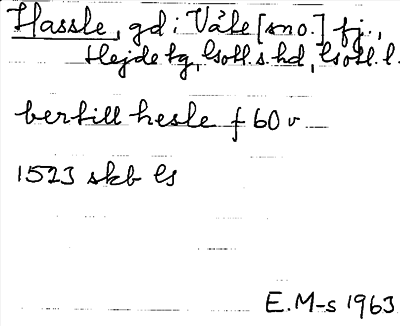 Hassle, gd i Väte [sno.] fj.,
Hejde tg, Gotl. s. hd, Gotl. l.
bertill hesle f 60 v
1523 skb G
E. M-s 1963